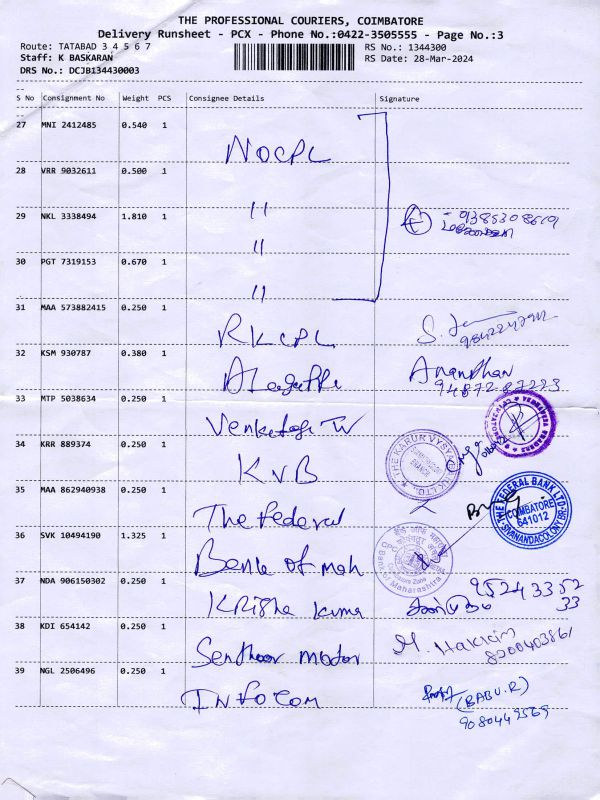 THE PROFESSIONAL COURIERS, COIMBATORE
Delivery Runsheet - PCX - Phone No.:0422-3505555 - Page No.:3
Route: TATABAD 3 4 5 6 7
RS No.: 1344300
Staff: K BASKARAN
RS Date: 28-Mar-2024
DRS No.: DCJB134430003
S No Consignment No Weight PCS Consignee Details Signature
27 MNI 2412485 0.540 1
NOCPL
28 VRR 9032611 0.500 1
"
29 NKL 3338494 1.810 1
9385308619
"
30 PGT 7319153 0.670 1
"
31 MAA 573882415 0.250 1
RKCPL
32 KSM 930787 0.380 1
Anandhan
33 MTP 5038634 0.250 1
34 KRR 889374 0.250 1
KVB
THE KARUR VYSYA
35 MAA 862940938 0.250 1
The Federal
THE FEDERAL BANK LTD.
COIMBATORE
641012
SIVANANDACOLONY BR.
36 SVK 10494190 1.325 1
Bank of mah
Bank of Maharashtra
37 NDA 906150302 0.250 1
95243352
33
Krisha kuma
38 KDI 654142 0.250 1
M. Hakkim
Senthoor motor
39 NGL 2506496 0.250 1
Infocom
(BABU.R)